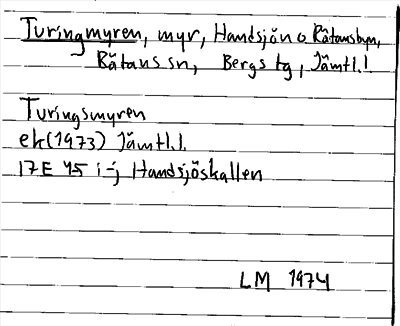 Turingmyren, myr, Handsjön o Rätansbyn,
Rätans sn, Bergs tg, Jämtl.l
Turingsmyren
ek (1973) Jämtl.l.
17E 45 i-j Handsjöskallen
LM 1974